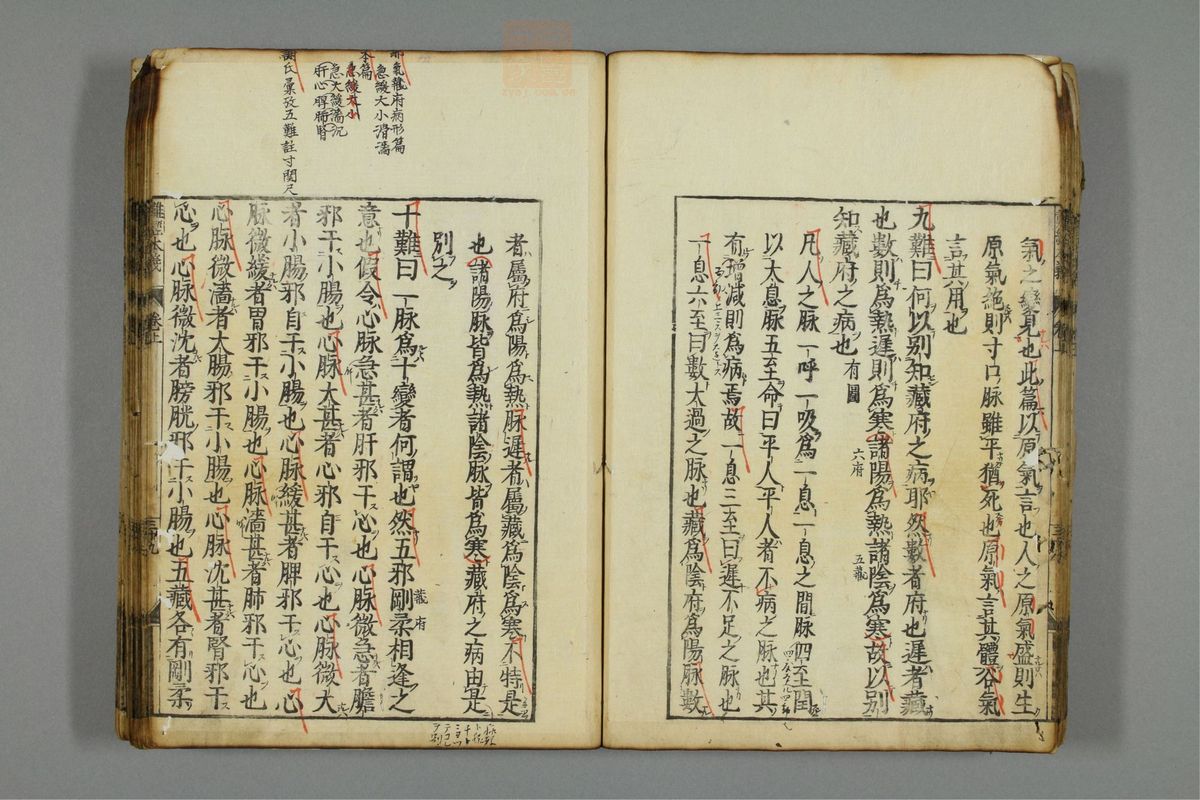 氣之變見也此篇以原氣言也人之原氣盛則生
原氣絶則寸口脉雖平猶死也原氣言其體谷氣
言其用也
九難曰何以別知藏府之病耶然數者府也遲者藏
也數則爲熱遲則爲寒諸陽爲熱諸陰爲寒故以別
知藏府之病也有圖
六府
五藏
凡人之脉一呼一吸爲一息一息之間脉四至閏
以太息脉五至命曰平人平人者不病之脉也其
有增減則爲病焉故一息三至曰遲不足之脉也
一息六至曰數太過之脉也藏爲陰府爲陽脉數
者屬府爲陽爲熱脉遲者屬藏爲陰爲寒不特是
也諸陽脉皆爲熱諸陰脉皆爲寒藏府之病由是
別之
十難曰一脉爲十變者何謂也然五邪剛柔相逢之
藏府
意也假令心脉急甚者肝邪干心也心脉微急者膽
邪干小腸也心脉大甚者心邪自干心也心脉微大
者小腸邪自干小腸也心脉緩甚者脾邪干心也心
脉微緩者胃邪干小腸也心脉濇甚者肺邪干心也
心脉微濇者大腸邪干小腸也心脉沈甚者腎邪干
心也心脉微沈者膀胱邪干小腸也五藏各有剛柔
氣藏府病形篇
急緩大小滑濇
本篇
急緩大小
急大緩濇沉
肝心脾肺腎
氏彙攷五難註寸関尺